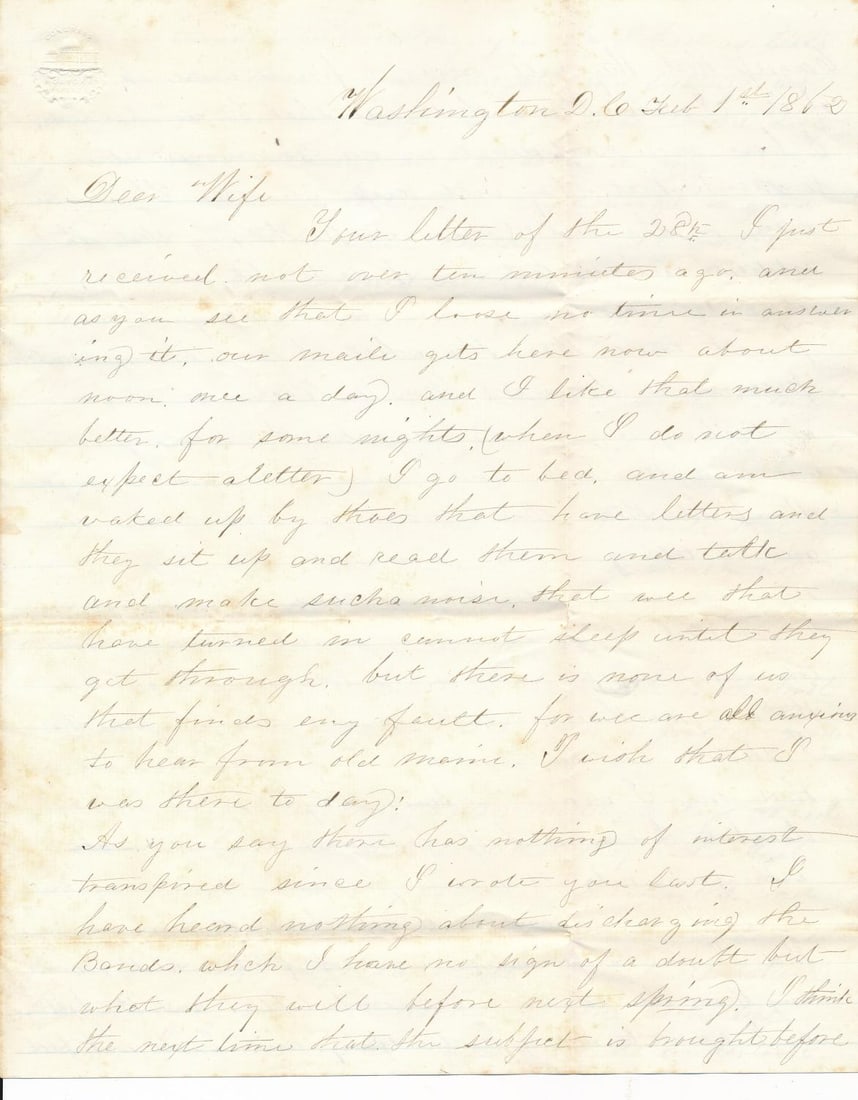 CONGRESS
Washington D.C Feb 1st 1862
Dear Wife
Your letter of the 28th I just
received. not over ten minutes ago. and
as you see that I loose no time in answer
ing it. our maile gets here now about
noon. once a day. and I like that much
better. for some nights, (when I do not
expect a letter) I go to bed, and am
waked up by thoes that have letters and
they sit up and read them and talk
and make such a noise, that wee that
have turned in cannot sleep until they
get through. but there is none of us
that finds eny fault. for wee are all anxious
to hear from old maine. I wish that I
was there to day!
As you say there has nothing of interest
transpired since I wrote you last. I
have heard nothing about discharging the
Bands. which I have no sign of a doubt but
what they will before next spring. I think
the next time that the subject is brought before